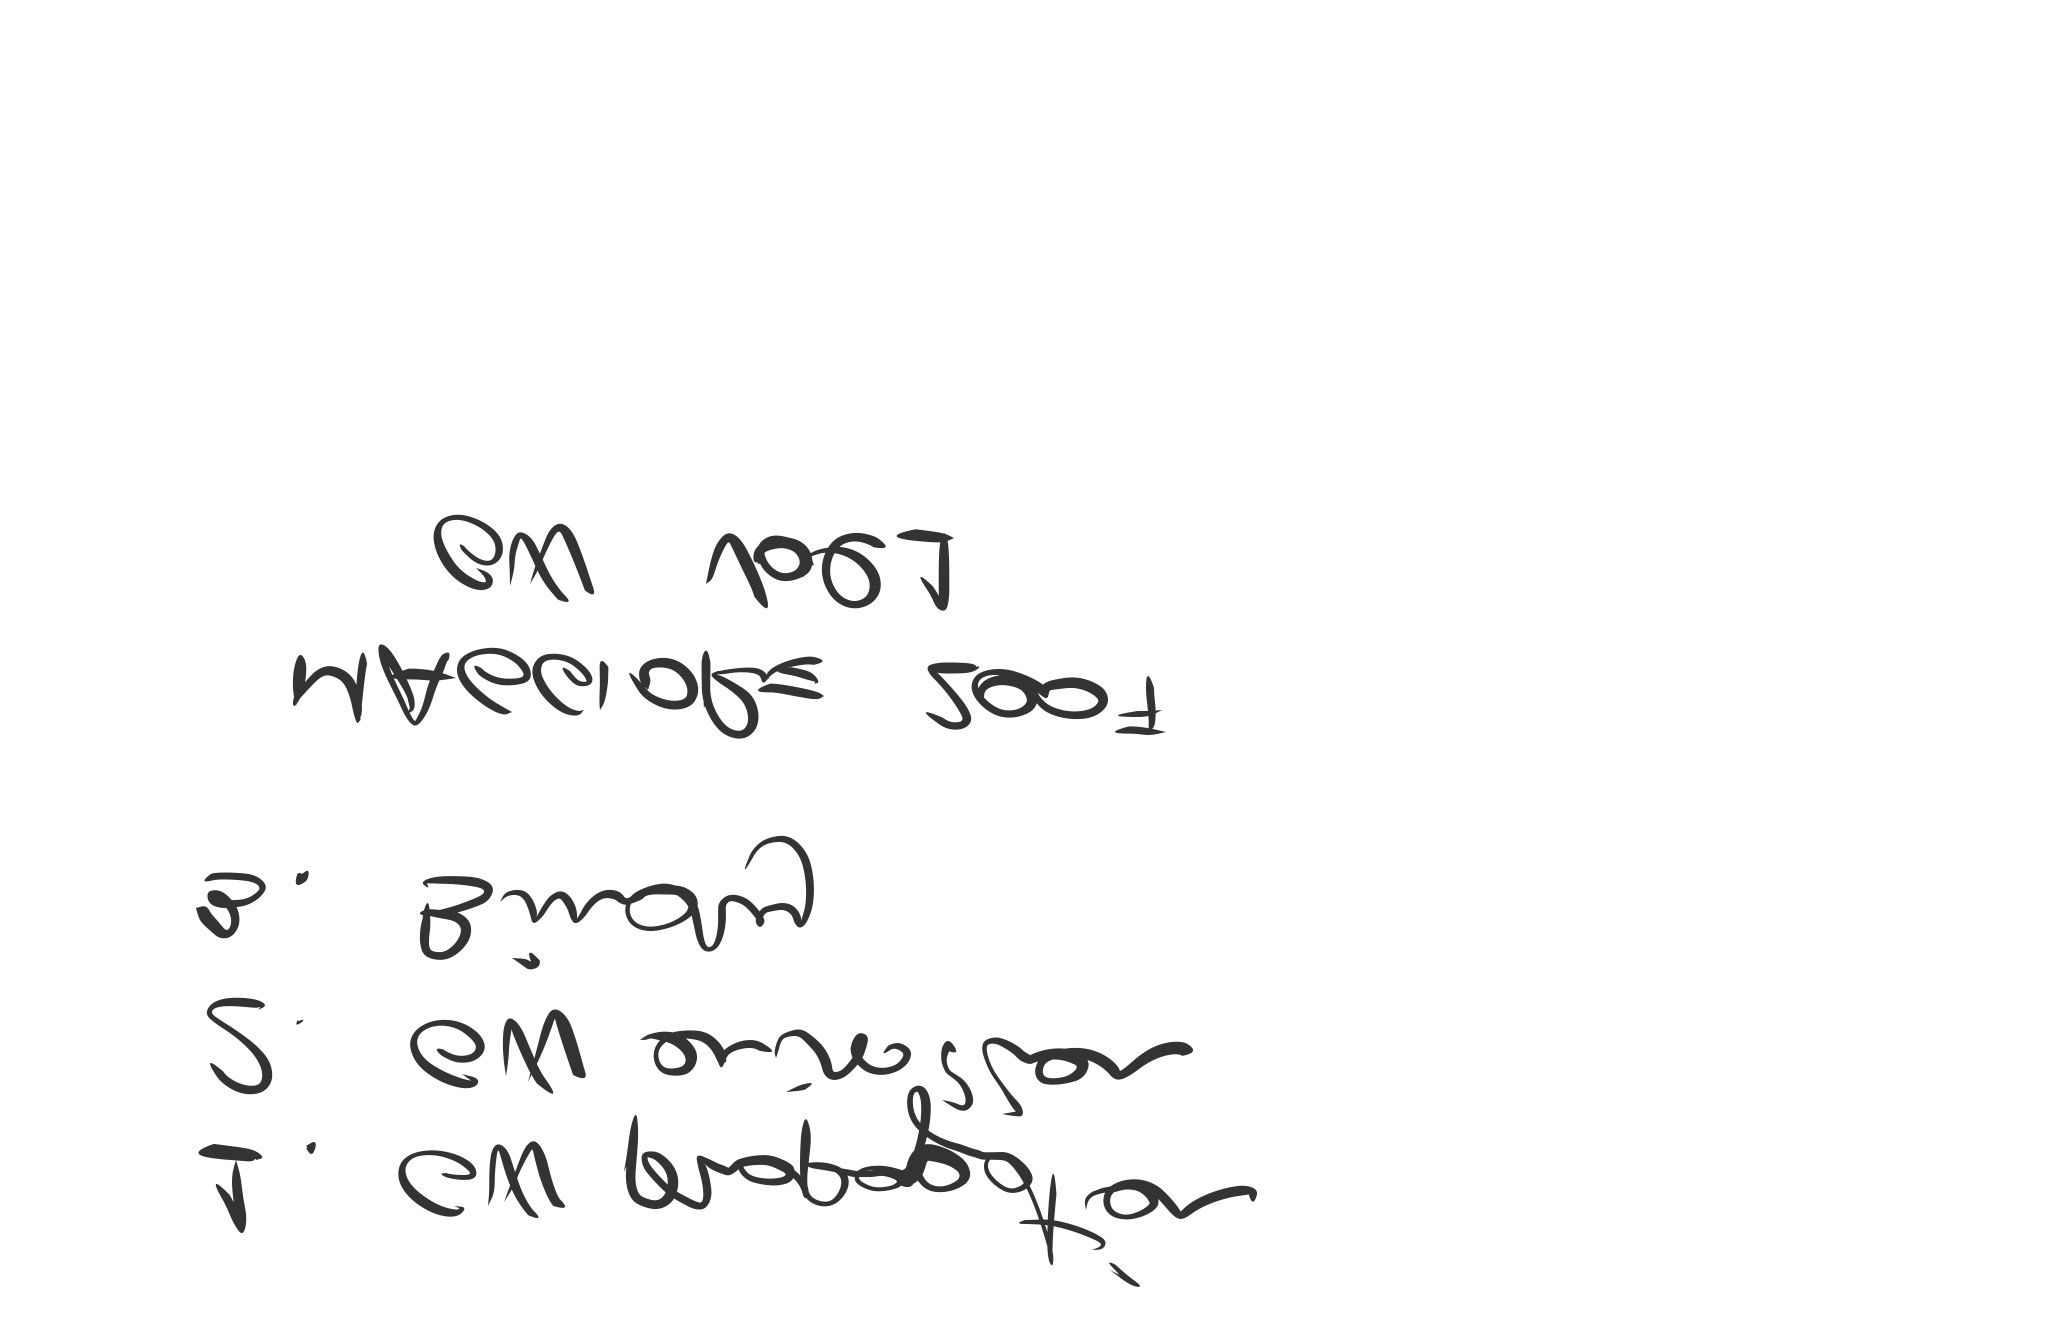 1. GW propagation
2. GW emission
3. Binary
MAGGIORE 2007
GW Vol 1